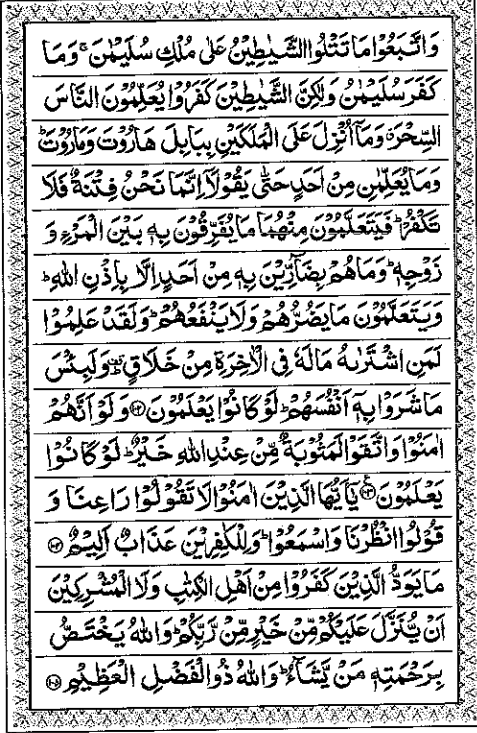 وَاتَّبَعُوْا مَا تَتْلُوا الشَّيٰطِيْنُ عَلٰى مُلْكِ سُلَيْمٰنَ ۚ وَمَا
كَفَرَ سُلَيْمٰنُ وَلٰكِنَّ الشَّيٰطِيْنَ كَفَرُوْا يُعَلِّمُوْنَ النَّاسَ
السِّحْرَ ۗ وَمَاۤ اُنْزِلَ عَلَى الْمَلَكَيْنِ بِبَابِلَ هَارُوْتَ وَمَارُوْتَ ؕ
وَمَا يُعَلِّمٰنِ مِنْ اَحَدٍ حَتّٰى يَقُوْلَاۤ اِنَّمَا نَحْنُ فِتْنَةٌ فَلَا
تَكْفُرْ ؕ فَيَتَعَلَّمُوْنَ مِنْهُمَا مَا يُفَرِّقُوْنَ بِهٖ بَيْنَ الْمَرْءِ وَ
زَوْجِهٖ ؕ وَمَا هُمْ بِضَآرِّيْنَ بِهٖ مِنْ اَحَدٍ اِلَّا بِاِذْنِ اللّٰهِ ؕ
وَيَتَعَلَّمُوْنَ مَا يَضُرُّهُمْ وَلَا يَنْفَعُهُمْ ؕ وَلَقَدْ عَلِمُوْا
لَمَنِ اشْتَرٰىهُ مَا لَهٗ فِى الْاٰخِرَةِ مِنْ خَلَاقٍ ؕ وَلَبِئْسَ
مَا شَرَوْا بِهٖۤ اَنْفُسَهُمْ ؕ لَوْ كَانُوْا يَعْلَمُوْنَ ۝۱۰۲ وَلَوْ اَنَّهُمْ
اٰمَنُوْا وَاتَّقَوْا لَمَثُوْبَةٌ مِّنْ عِنْدِ اللّٰهِ خَيْرٌ ؕ لَوْ كَانُوْا
يَعْلَمُوْنَ ۝۱۰۳ يٰۤاَيُّهَا الَّذِيْنَ اٰمَنُوْا لَا تَقُوْلُوْا رَاعِنَا وَ
قُوْلُوا انْظُرْنَا وَاسْمَعُوْا ؕ وَلِلْكٰفِرِيْنَ عَذَابٌ اَلِيْمٌ ۝۱۰۴
مَا يَوَدُّ الَّذِيْنَ كَفَرُوْا مِنْ اَهْلِ الْكِتٰبِ وَلَا الْمُشْرِكِيْنَ
اَنْ يُّنَزَّلَ عَلَيْكُمْ مِّنْ خَيْرٍ مِّنْ رَّبِّكُمْ ؕ وَاللّٰهُ يَخْتَصُّ
بِرَحْمَتِهٖ مَنْ يَّشَآءُ ؕ وَاللّٰهُ ذُو الْفَضْلِ الْعَظِيْمِ ۝۱۰۵